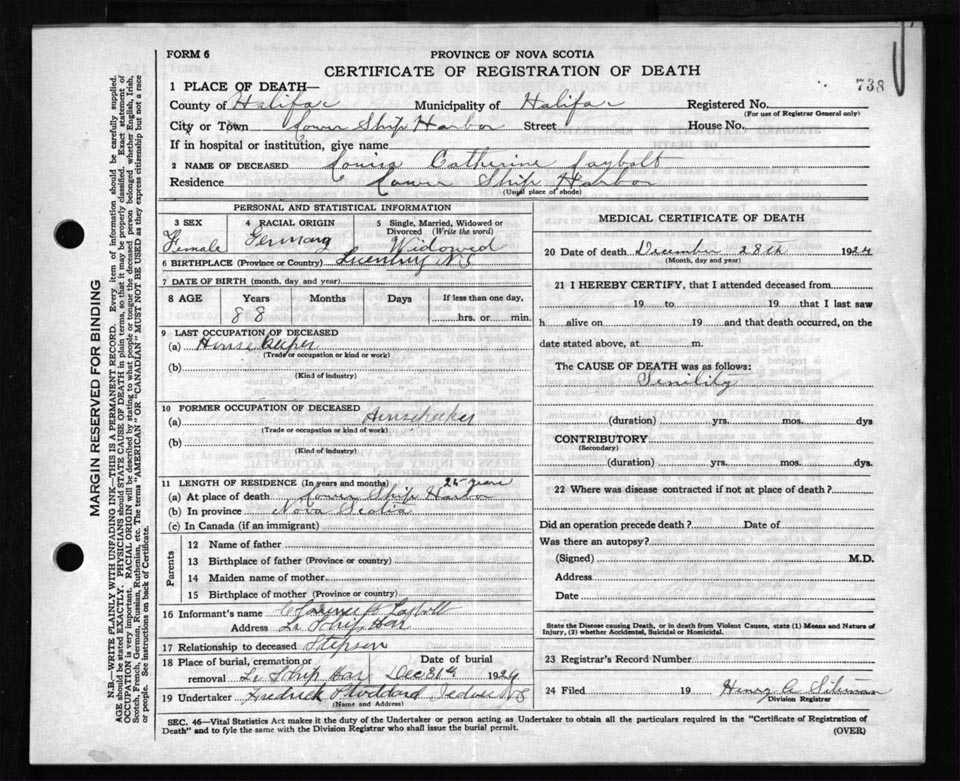 FORM 6
PROVINCE OF NOVA SCOTIA
CERTIFICATE OF REGISTRATION OF DEATH
738
1 PLACE OF DEATH—
County of Halifax Municipality of Halifax Registered No.
(For use of Registrar General only)
City or Town Lower Ship Harbor Street House No.
If in hospital or institution, give name
2 NAME OF DECEASED Louisa Catherine Laybolt
Residence Lower Ship Harbor
(Usual place of abode)
PERSONAL AND STATISTICAL INFORMATION
3 SEX
Female
4 RACIAL ORIGIN
Germany
5 Single, Married, Widowed or Divorced (Write the word)
Widowed
6 BIRTHPLACE (Province or Country) N S
7 DATE OF BIRTH (month, day and year)
8 AGE Years Months Days If less than one day,
88 hrs. or min.
9 LAST OCCUPATION OF DECEASED
(a) House Keeper
(Trade or occupation or kind of work)
(b)
(Kind of industry)
10 FORMER OCCUPATION OF DECEASED
(a) Housekeeker
(Trade or occupation or kind of work)
(b)
(Kind of industry)
11 LENGTH OF RESIDENCE (In years and months) 25 years
(a) At place of death Lower Ship Harbor
(b) In province Nova Scotia
(c) In Canada (if an immigrant)
Parents
12 Name of father
13 Birthplace of father (Province or country)
14 Maiden name of mother
15 Birthplace of mother (Province or country)
16 Informant's name Laybolt
Address Lr Ship Har
17 Relationship to deceased Stepson
18 Place of burial, cremation or removal Lr Ship Har Date of burial Dec 31st 1929
19 Undertaker Fredrick Stoddard N S
(Name and Address)
MEDICAL CERTIFICATE OF DEATH
20 Date of death December 28th 1929
(Month, day and year)
21 I HEREBY CERTIFY, that I attended deceased from
19 to 19 that I last saw
h alive on 19 and that death occurred, on the
date stated above, at m.
The CAUSE OF DEATH was as follows:
Senility
(duration) yrs. mos. dys
CONTRIBUTORY
(Secondary)
(duration) yrs. mos. dys.
22 Where was disease contracted if not at place of death?
Did an operation precede death? Date of
Was there an autopsy?
(Signed) M.D.
Address
Date
State the Disease causing Death, or in death from Violent Causes, state (1) Means and Nature of
Injury, (2) whether Accidental, Suicidal or Homicidal.
23 Registrar's Record Number
24 Filed 19 Henry A
Division Registrar
SEC. 46—Vital Statistics Act makes it the duty of the Undertaker or person acting as Undertaker to obtain all the particulars required in the "Certificate of Registration of
Death" and to fyle the same with the Division Registrar who shall issue the burial permit.
(OVER)
MARGIN RESERVED FOR BINDING
N.B.—WRITE PLAINLY WITH UNFADING INK—THIS IS A PERMANENT RECORD. Every item of information should be carefully supplied.
AGE should be stated EXACTLY. PHYSICIANS should STATE CAUSE OF DEATH in plain terms, so that it may be properly classified. Exact statement of
OCCUPATION is very important. RACIAL ORIGIN will be described by stating to what people or tongue the deceased person belonged whether English, Irish,
Scotch, French, German, Russian, Ruthenian, etc. The terms "AMERICAN" OR "CANADIAN" MUST NOT BE USED as they express citizenship but not a race
or people. See instructions on back of Certificate.